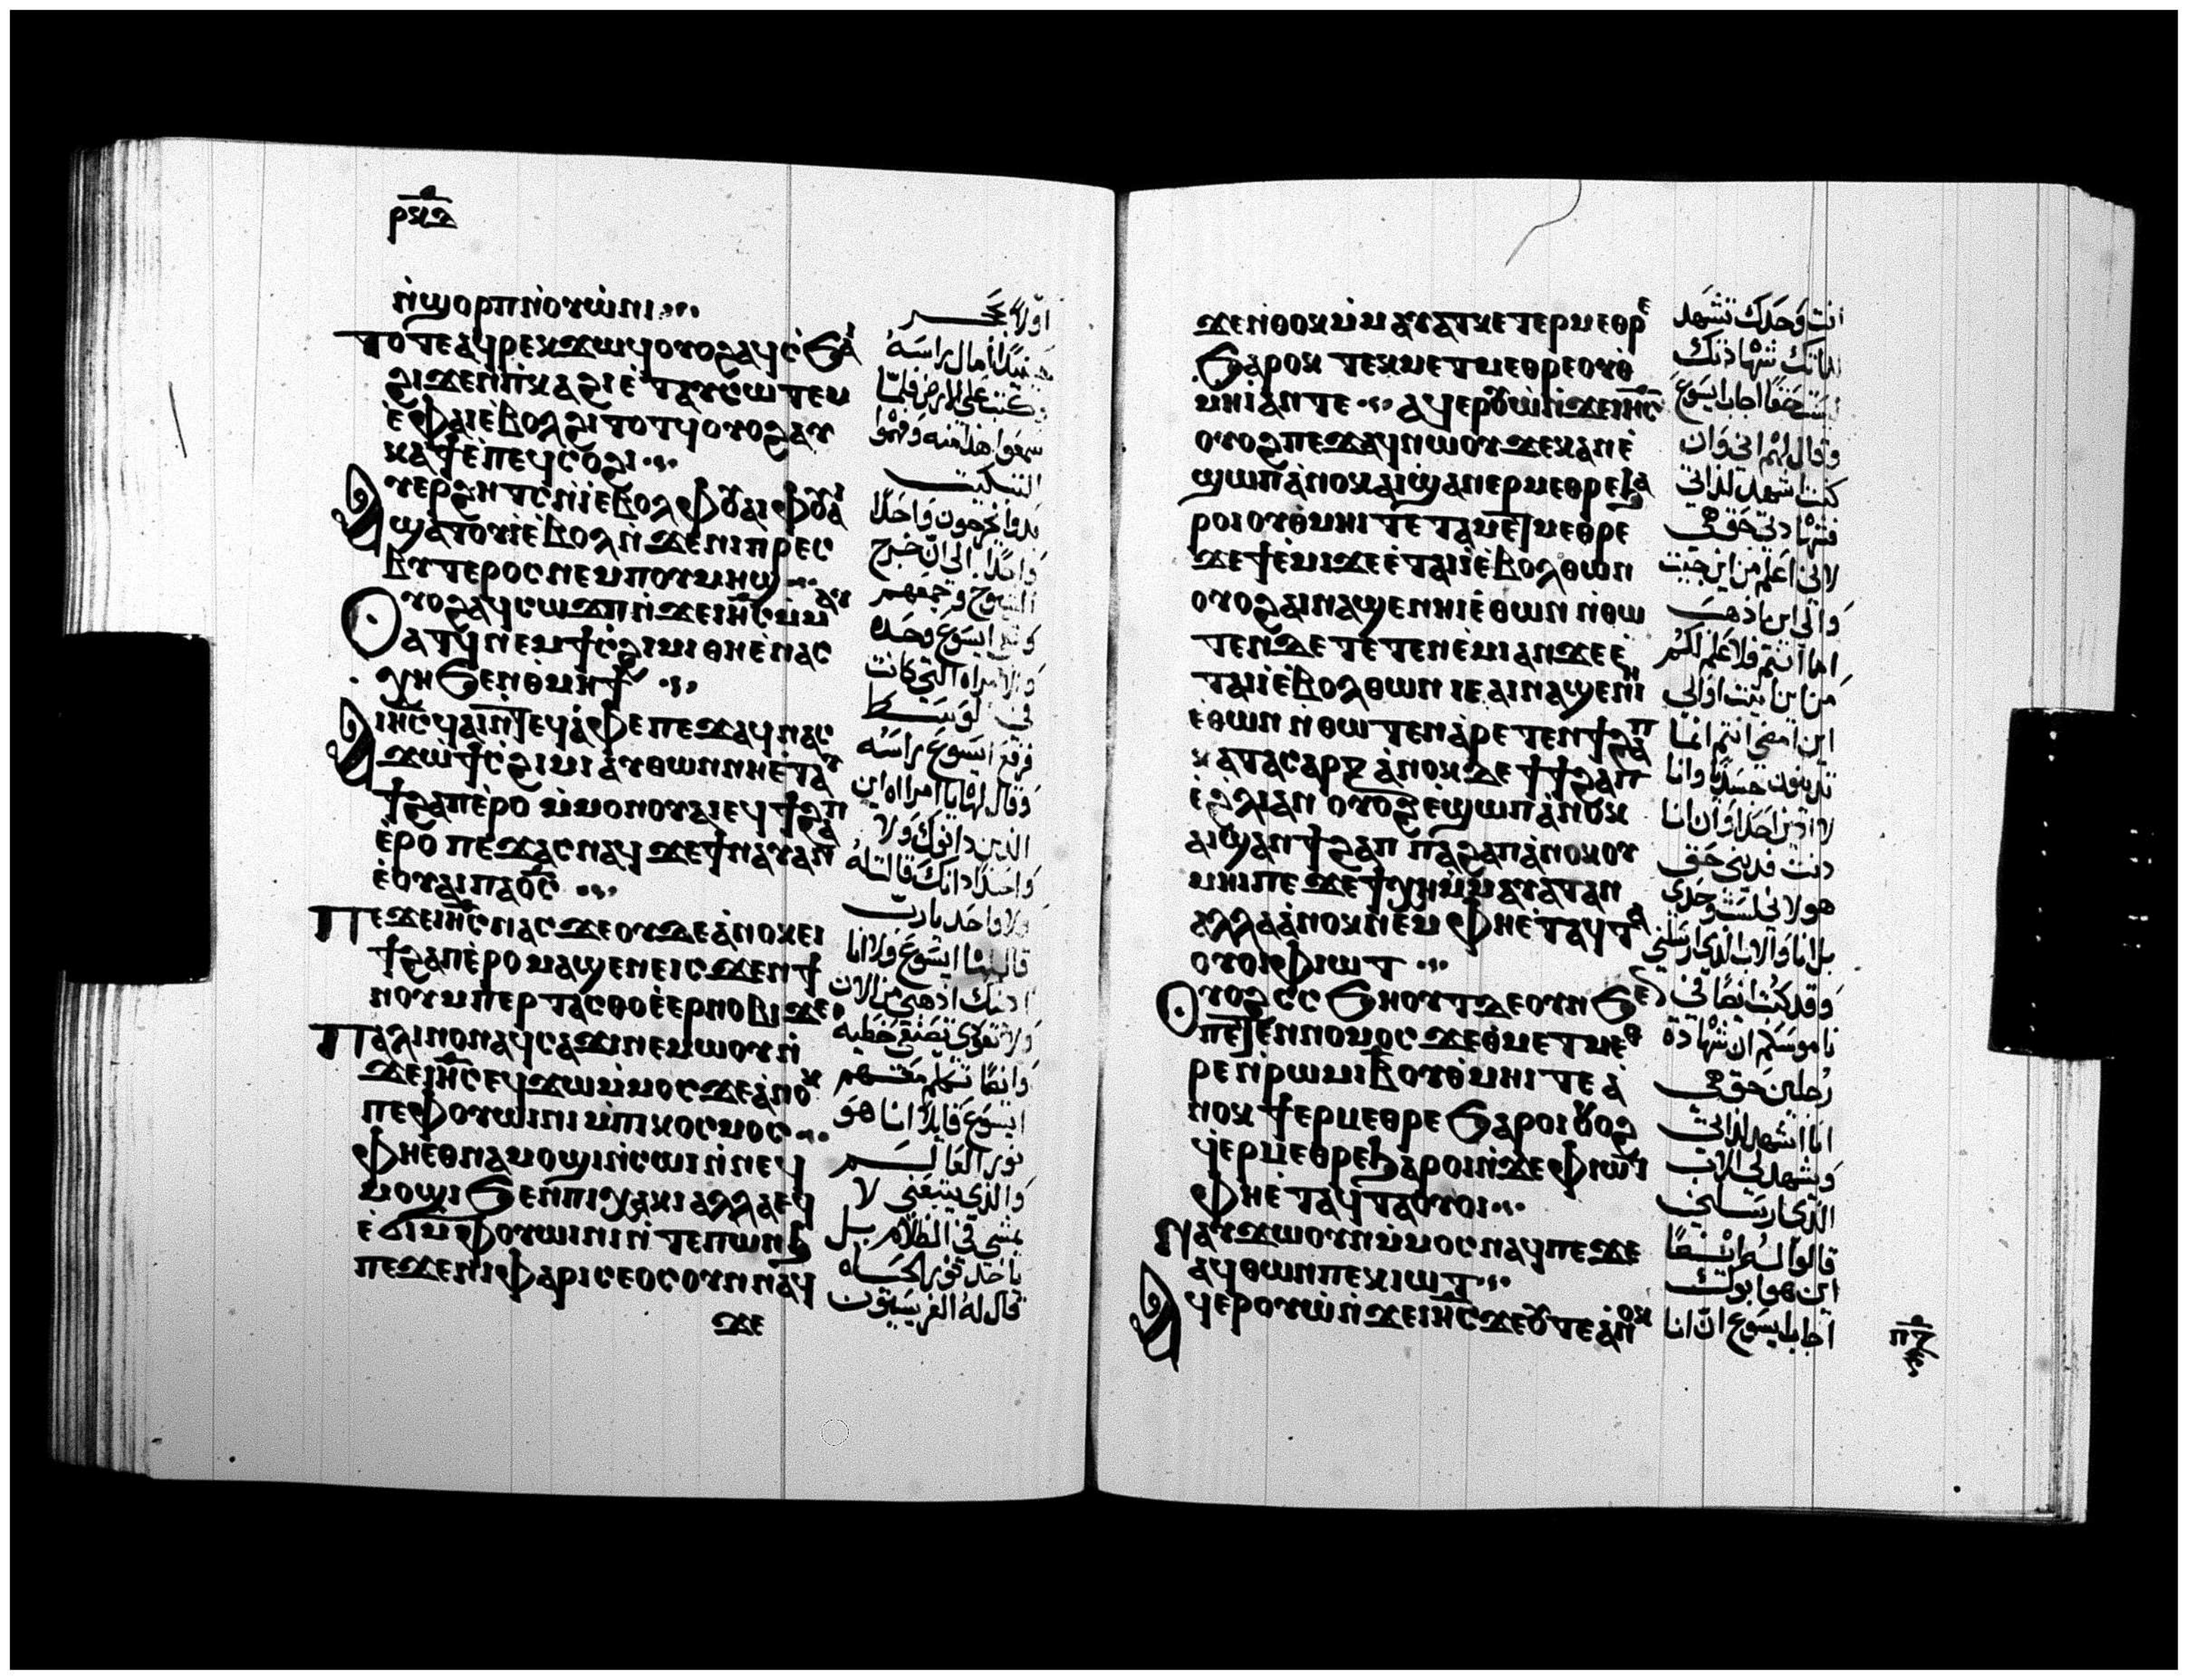 ⲣⲝⲇ
ⲛ̀ϣⲟⲣⲡ ⲛ̀ⲟⲩⲱ̀ⲛⲓ
ⲧⲟⲧⲉ ⲁϥⲣⲉⲕϫⲱϥ ⲟⲩⲟϩ ⲁϥⲥ̀ϧⲁⲓ
ϩⲓϫⲉⲛ ⲡ̀ⲕⲁϩⲓ ⲉ̀ⲧⲁⲩⲥⲱⲧⲉⲙ
ⲉ̀ⲫⲁⲓ ⲉ̀ⲃⲟⲗϩⲓⲧⲟⲧϥ ⲟⲩⲟϩ ⲁⲩ
ⲭⲁϯ ⲉ̀ⲡⲉϥⲥⲟϩⲓ
ⲁⲩⲉⲣϩⲏⲧⲥ ⲛ̀ⲓ̀ ⲉ̀ⲃⲟⲗ ⲫⲟⲩⲁⲓ ⲫⲟⲩⲁⲓ
ϣⲁⲧⲟⲩⲓ̀ ⲉ̀ⲃⲟⲗ ⲛ̀ϫⲉ ⲛⲓⲡⲣⲉⲥ
ⲃⲩⲧⲉⲣⲟⲥ ⲛⲉⲙ ⲡⲟⲩⲙⲏϣ
ⲟⲩⲟϩ ⲁϥⲥⲱϫⲡ ⲛ̀ϫⲉ ⲓⲏⲥ ⲙ̀ⲙⲁⲩ
ⲁⲧϥ ⲛⲉⲙ ϯⲥ̀ϩⲓⲙⲓ ⲑⲏ ⲉ̀ⲛⲁⲥ
ⲭⲏ ϧⲉⲛ ⲑ̀ⲙⲏϯ
ⲁ ⲓⲏⲥ ϥⲁⲓ ⲛ̀ⲛⲉϥⲁ̀ⲫⲉ ⲡⲉϫⲁϥ ⲛⲁⲥ
ϫⲱ ϯⲥ̀ϩⲓⲙⲓ ⲁⲩⲑⲱⲛ ⲛⲏ ⲉ̀ⲧⲁⲩ
ϯϩⲁⲡ ⲉ̀ⲣⲟ ⲙ̀ⲙⲟⲛ ⲟⲩⲁⲓ ⲉϥϯϩⲁⲡ
ⲉ̀ⲣⲟ ⲡⲉϫⲁⲥ ⲛⲁϥ ϫⲉ ϯⲛⲁⲩ ⲁⲛ
ⲉ̀ⲟⲩⲁⲓ ⲡⲁⲟ̅ⲥ̅
ⲡⲉϫⲉ ⲓⲏⲥ ⲛⲁⲥ ϫⲉ ⲟⲩⲇⲉ ⲁ̀ⲛⲟⲕ ⲉⲓ
ϯϩⲁⲡ ⲉ̀ⲣⲟ ⲙⲁϣⲉ ⲛⲉ ⲓⲥϫⲉⲛ ϯ
ⲛⲟⲩ ⲙⲡⲉⲣⲧⲁⲥⲑⲟ ⲉ̀ⲉⲣⲛⲟⲃⲓ ϫⲉ
ⲡⲁⲗⲓⲛ ⲟⲛ ⲁϥⲥⲁϫⲓ ⲛⲉⲙⲱⲟⲩ ⲛ̀
ϫⲉ ⲓⲏⲥ ⲉϥϫⲱ ⲙ̀ⲙⲟⲥ ϫⲉ ⲁ̀ⲛⲟⲕ
ⲡⲉ ⲫⲟⲩⲱⲓⲛⲓ ⲙ̀ⲡⲕⲟⲥⲙⲟⲥ
ⲫⲏ ⲉⲑⲛⲁⲙⲟϣⲓ ⲛ̀ⲥⲱⲓ ⲛ̀ⲛⲉϥ
ⲙⲟϣⲓ ϧⲉⲛ ⲡⲓⲭⲁⲕⲓ ⲁⲗⲗⲁ ⲉϥ
ⲉ̀ϭⲓ ⲙ̀ⲫⲟⲩⲱⲓⲛⲓ ⲛ̀ⲧⲉ ⲡⲱⲛϧ
ⲡⲉϫⲉ ⲛⲓⲫⲁⲣⲓⲥⲉⲟⲥ ⲟⲩⲛ ⲛⲁϥ
ϫⲉ
اولًا بحجر
حينيذًا امال راسه
وكتب على الارض فلما
سمعوا هذا منه وفهموا
التبكيت
بدوا يخرجون واحدًا
واحدًا الى ان خرج
الشيوخ وجمعهم
وبقي ايسوع وحده
والامراه التي كانت
في الوسط
فرفع ايسوع راسه
وقال لها يا امراه اين
الذين دانوك ولا
واحدًا دانك قالت له
ولا واحد يا رب
قال لها ايسوع ولا انا
ادينك اذهبي من الان
ولا تعودي تصنعي خطيه
وايضًا تكلم معهم
ايسوع قايلًا انا هو
نور العالم
والذي يتبعني لا
يمشي في الظلام بل
ياخذ نور الحياه
قال له الفريسيون
ϫⲉ ⲛ̀ⲑⲟⲕ ⲙ̀ⲙⲁⲩⲁⲧⲕ ⲉⲧⲉⲣⲙⲉⲑⲣⲉ
ϧⲁⲣⲟⲕ ⲧⲉⲕⲙⲉⲧⲙⲉⲑⲣⲉ ⲟⲩⲑ̀
ⲙⲏⲓ ⲁⲛ ⲧⲉ ⲁϥⲉⲣⲟⲩⲱ̀ ⲛ̀ϫⲉ ⲓⲏⲥ
ⲟⲩⲟϩ ⲡⲉϫⲁϥ ⲛⲱⲟⲩ ϫⲉ ⲕⲁⲛ ⲉ̀
ϣⲱⲡ ⲁ̀ⲛⲟⲕ ⲁⲓϣⲁⲛⲉⲣⲙⲉⲑⲣⲉ ϧⲁ
ⲣⲟⲓ ⲟⲩⲑ̀ⲙⲏⲓ ⲧⲉ ⲧⲁⲙⲉⲧⲙⲉⲑⲣⲉ
ϫⲉ ϯⲉ̀ⲙⲓ ϫⲉ ⲉ̀ⲧⲁⲓⲓ̀ ⲉ̀ⲃⲟⲗ ⲑⲱⲛ
ⲟⲩⲟϩ ⲁⲓⲛⲁϣⲉ ⲛⲏⲓ ⲉ̀ⲑⲱⲛ ⲛ̀ⲑⲱ
ⲧⲉⲛ ⲇⲉ ⲧⲉⲧⲉⲛⲉ̀ⲙⲓ ⲁⲛ ϫⲉ ⲉ̀
ⲧⲁⲓⲓ̀ ⲉ̀ⲃⲟⲗ ⲑⲱⲛ ⲓⲉ ⲁⲓⲛⲁϣⲉ ⲛⲏⲓ
ⲉ̀ⲑⲱⲛ ⲛ̀ⲑⲱⲧⲉⲛ ⲁ̀ⲣⲉⲧⲉⲛϯϩⲁⲡ
ⲕⲁⲧⲁ ⲥⲁⲣⲝ ⲁ̀ⲛⲟⲕ ⲇⲉ ϯϯϩⲁⲡ
ⲉ̀ϩ̀ⲗⲓ ⲁⲛ ⲟⲩⲟϩ ⲉ̀ϣⲱⲡ ⲁ̀ⲛⲟⲕ
ⲁⲓϣⲁⲛϯϩⲁⲡ ⲡⲁϩⲁⲡ ⲁ̀ⲛⲟⲕ ⲟⲩ
ⲙⲏⲓ ⲡⲉ ϫⲉ ϯⲭⲏ ⲙ̀ⲙⲁⲩⲁⲧ ⲁⲛ
ⲁⲗⲗⲁ ⲁ̀ⲛⲟⲕ ⲛⲉⲙ ⲫⲏ ⲉ̀ⲧⲁϥⲧⲁ
ⲟⲩⲟⲓ ⲫⲓⲱⲧ
ⲟⲩⲟϩ ⲥⲥ̀ϧⲏⲟⲩⲧ ⲇⲉ ⲟⲩⲛ ϧⲉⲛ
ⲡⲉⲧⲉⲛⲛⲟⲙⲟⲥ ϫⲉ ⲑ̀ⲙⲉⲧⲙⲉⲑ
ⲣⲉ ⲛ̀ⲣⲱⲙⲓ ⲃ ⲟⲩⲑ̀ⲙⲏⲓ ⲧⲉ ⲁ̀
ⲛⲟⲕ ϯⲉⲣⲙⲉⲑⲣⲉ ϧⲁⲣⲟⲓ ⲟⲩⲟϩ
ϥⲉⲣⲙⲉⲑⲣⲉ ϧⲁⲣⲟⲓ ⲛ̀ϫⲉ ⲫⲓⲱⲧ
ⲫⲏ ⲉ̀ⲧⲁϥⲧⲁⲟⲩⲟⲓ
ⲛⲁⲩϫⲱ ⲟⲩⲛ ⲙ̀ⲙⲟⲥ ⲛⲁϥ ⲡⲉ ϫⲉ
ⲁϥⲑⲱⲛ ⲡⲉⲕⲓⲱⲧ
ⲁϥⲉⲣⲟⲩⲱ̀ ⲛ̀ϫⲉ ⲓⲏⲥ ϫⲉ ⲟⲩⲧⲉ ⲁ̀ⲛⲟⲕ
انت وحدك تشهد
لذاتك شهادتك
ليست حقًا اجاب ايسوع
وقال لهم اني وان
كنت اشهد لذاتي
فشهادتي حق هي
لاني اعلم من اين جيت
والى اين اذهب
اما انتم فلا علم لكم
من اين اتيت او الى
اين امضي انتم انما
تدينون جسديًا وانا
لا ادين احدا وان انا
دنت فديني حق
هو لاني لست وحدي
بل انا والاب الذي ارسلني
وقد كتب ايضًا في
ناموسكم ان شهادة
رجلين حق هي
انا اشهد لذاتي
ويشهد لي الاب
الذي ارسلني
قالوا له ايضًا
اين هو ابوك
اجاب ايسوع ان انا